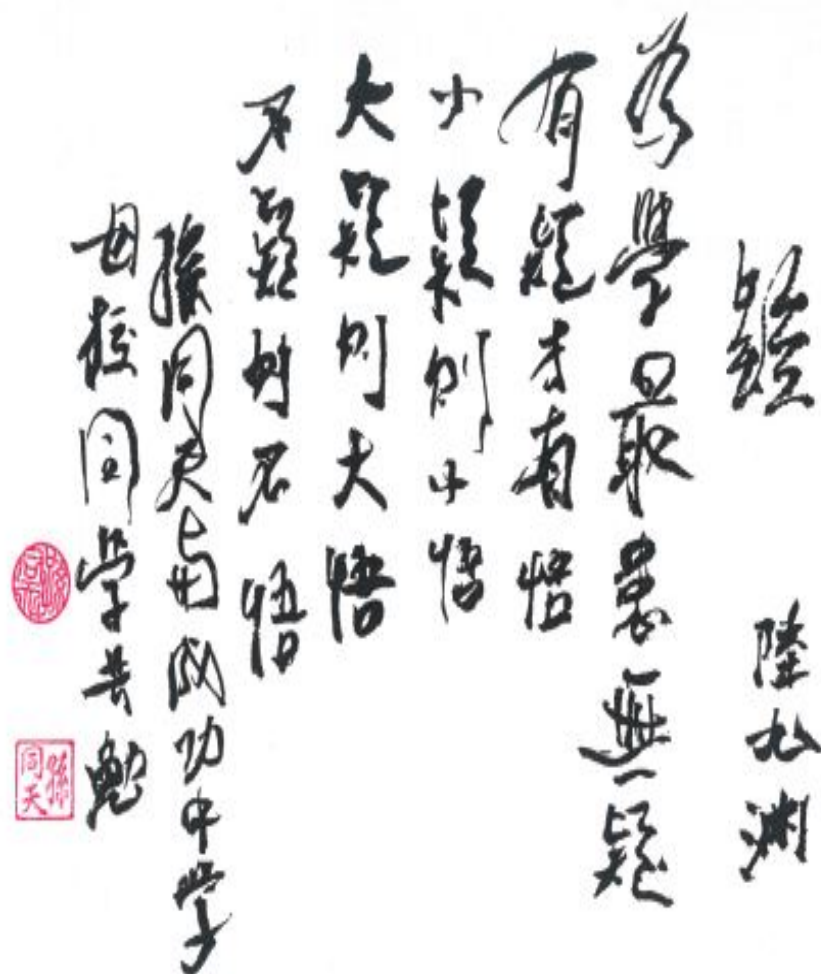 疑 陸九淵
為學最患無疑
有疑才有悟
小疑則小悟
大疑則大悟
不疑則不悟
孫同天與成功中學
母校同學共勉
孫同天